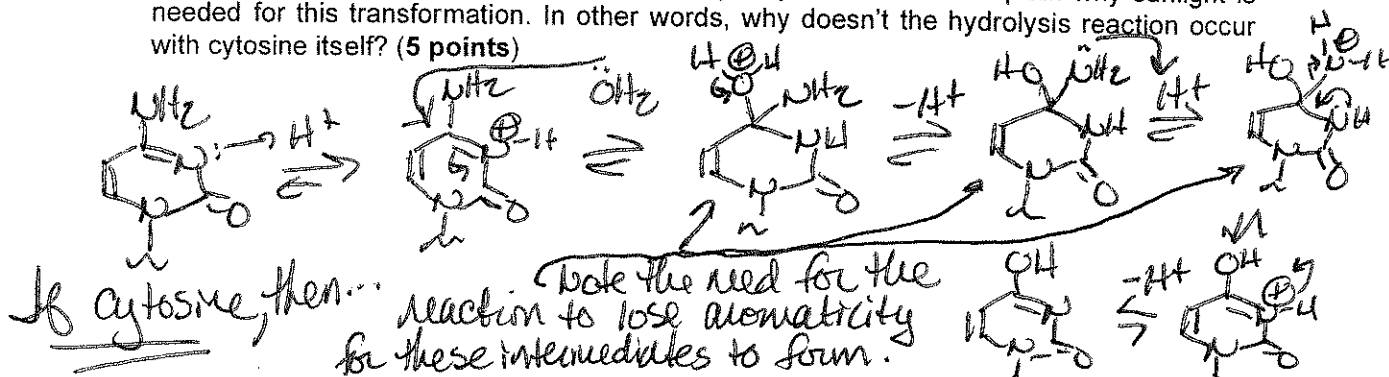 needed for this transformation. In other words, why doesn't the hydrolysis reaction occur
with cytosine itself? (5 points)
NH2 N: H+ N N O
NH2 ÖH2 ⊕ N-H N O
H ⊕ H O NH2 NH N O
-H+
HO N̈H2 NH N O
H+
H ⊕ HO N-H NH N O
If cytosine, then...
Note the need for the
reaction to lose aromaticity
for these intermediates to form.
OH N N O
-H+
OH ⊕ N-H N O